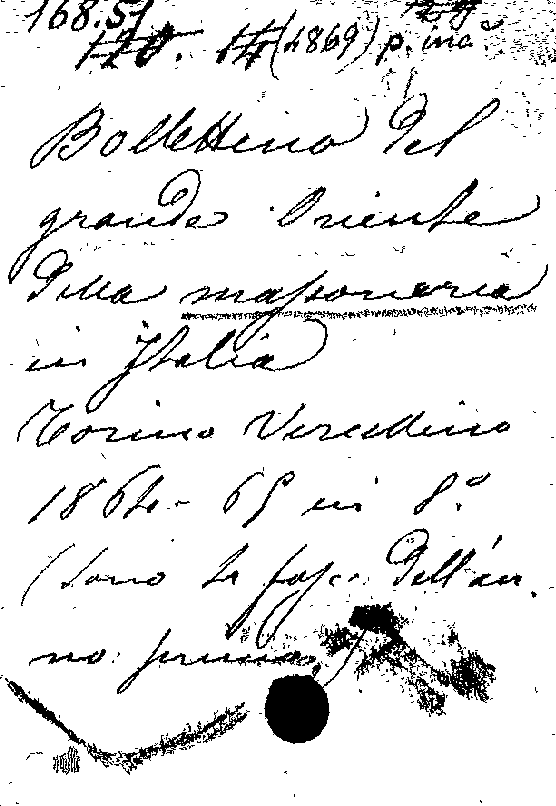 168.51
120. 14 (1869) p. inc.
Bollettino del
grande Oriente
della massoneria
in Italia
Torino Vercellino
1864-65 in 8.°
(sono 12 fasc. dell'an-
no primo)